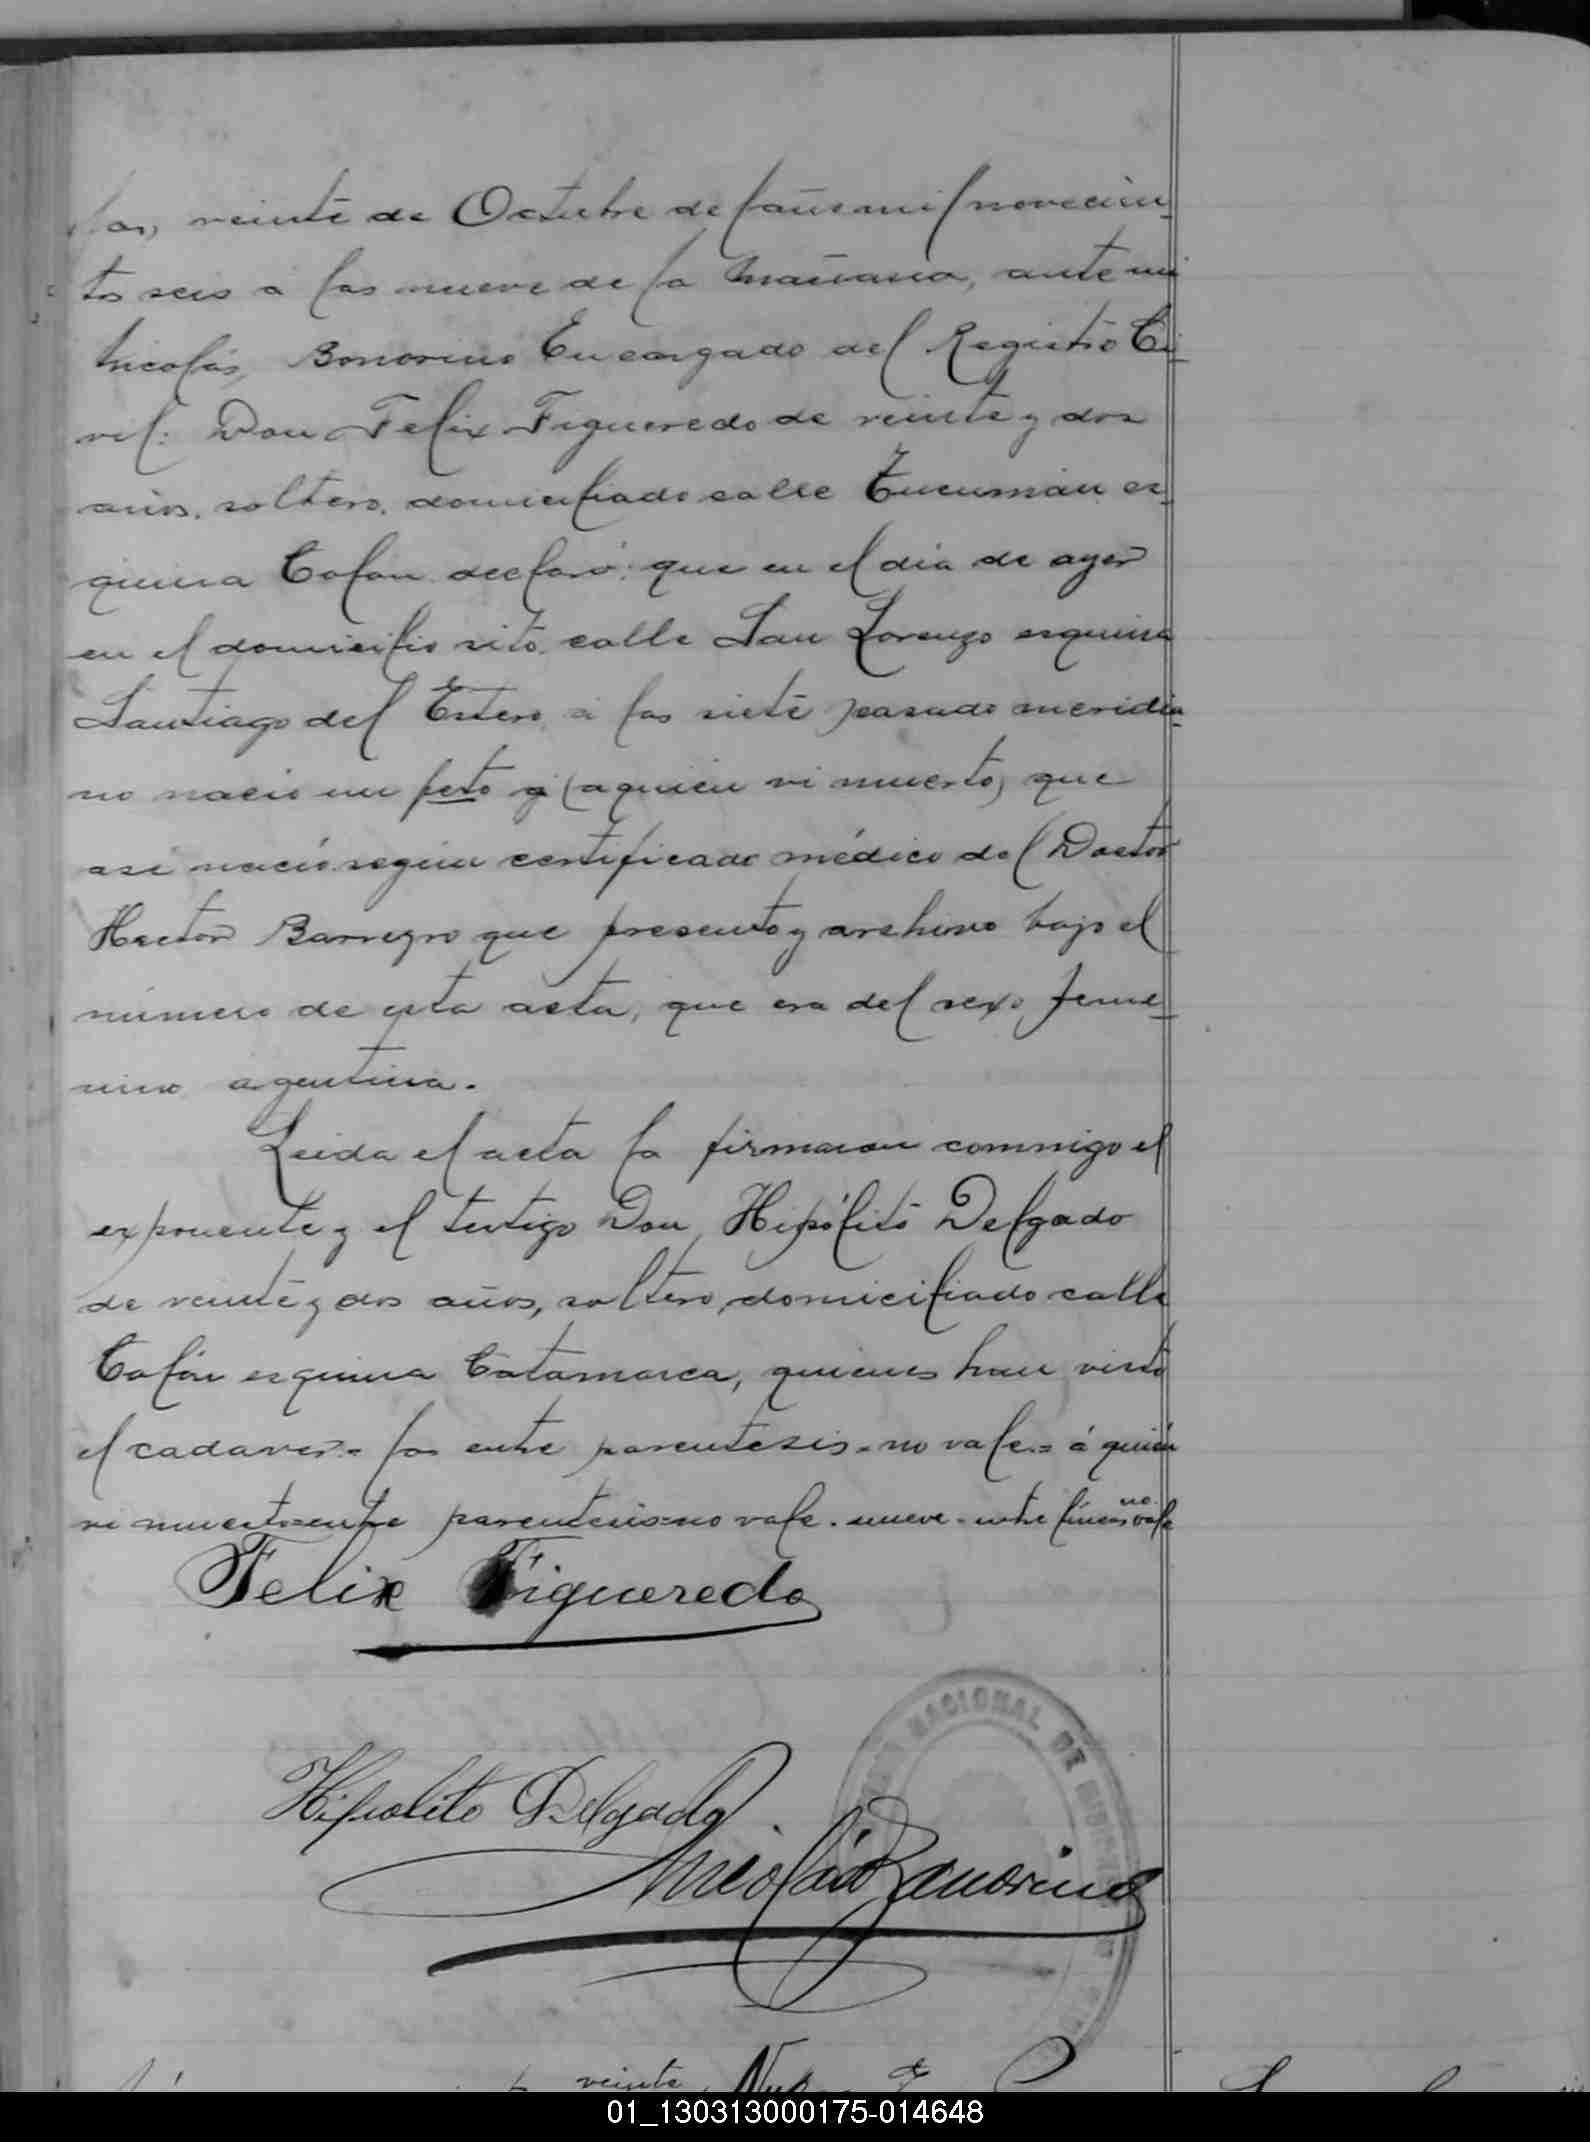 veinte de Octubre del año mil novecien-
tos seis a las nueve de la mañana, ante mi
Nicolás Bonorino Encargado del Registro Ci-
vil: Don Felix Figueredo de veinte y dos
años, soltero, domiciliado calle Tucumán es-
quina Colon declaró: que en el dia de ayer
en el domicilio sito calle San Lorenzo esquina
Santiago del Estero a las siete pasado meridia-
no nació un feto (a quien vi muerto) que
asi nació segun certificado médico del Doctor
Hector que presento y archivo bajo el
número de esta acta, que era del sexo feme-
nino argentina.
Leida el acta la firmaron conmigo el
exponente y el testigo Don Hipólito Delgado
de veinte y dos años, soltero, domiciliado calle
Colón esquina Catamarca, quienes han visto
el cadaver= las entre parentesis= no vale= á quién
vi muerto=entre parentesis=no vale. nueve=entre líneas no vale
Felix Figueredo
Hipolito Delgado
Nicolás Bonorino
NACIONAL DE
veinte
01_130313000175-014648